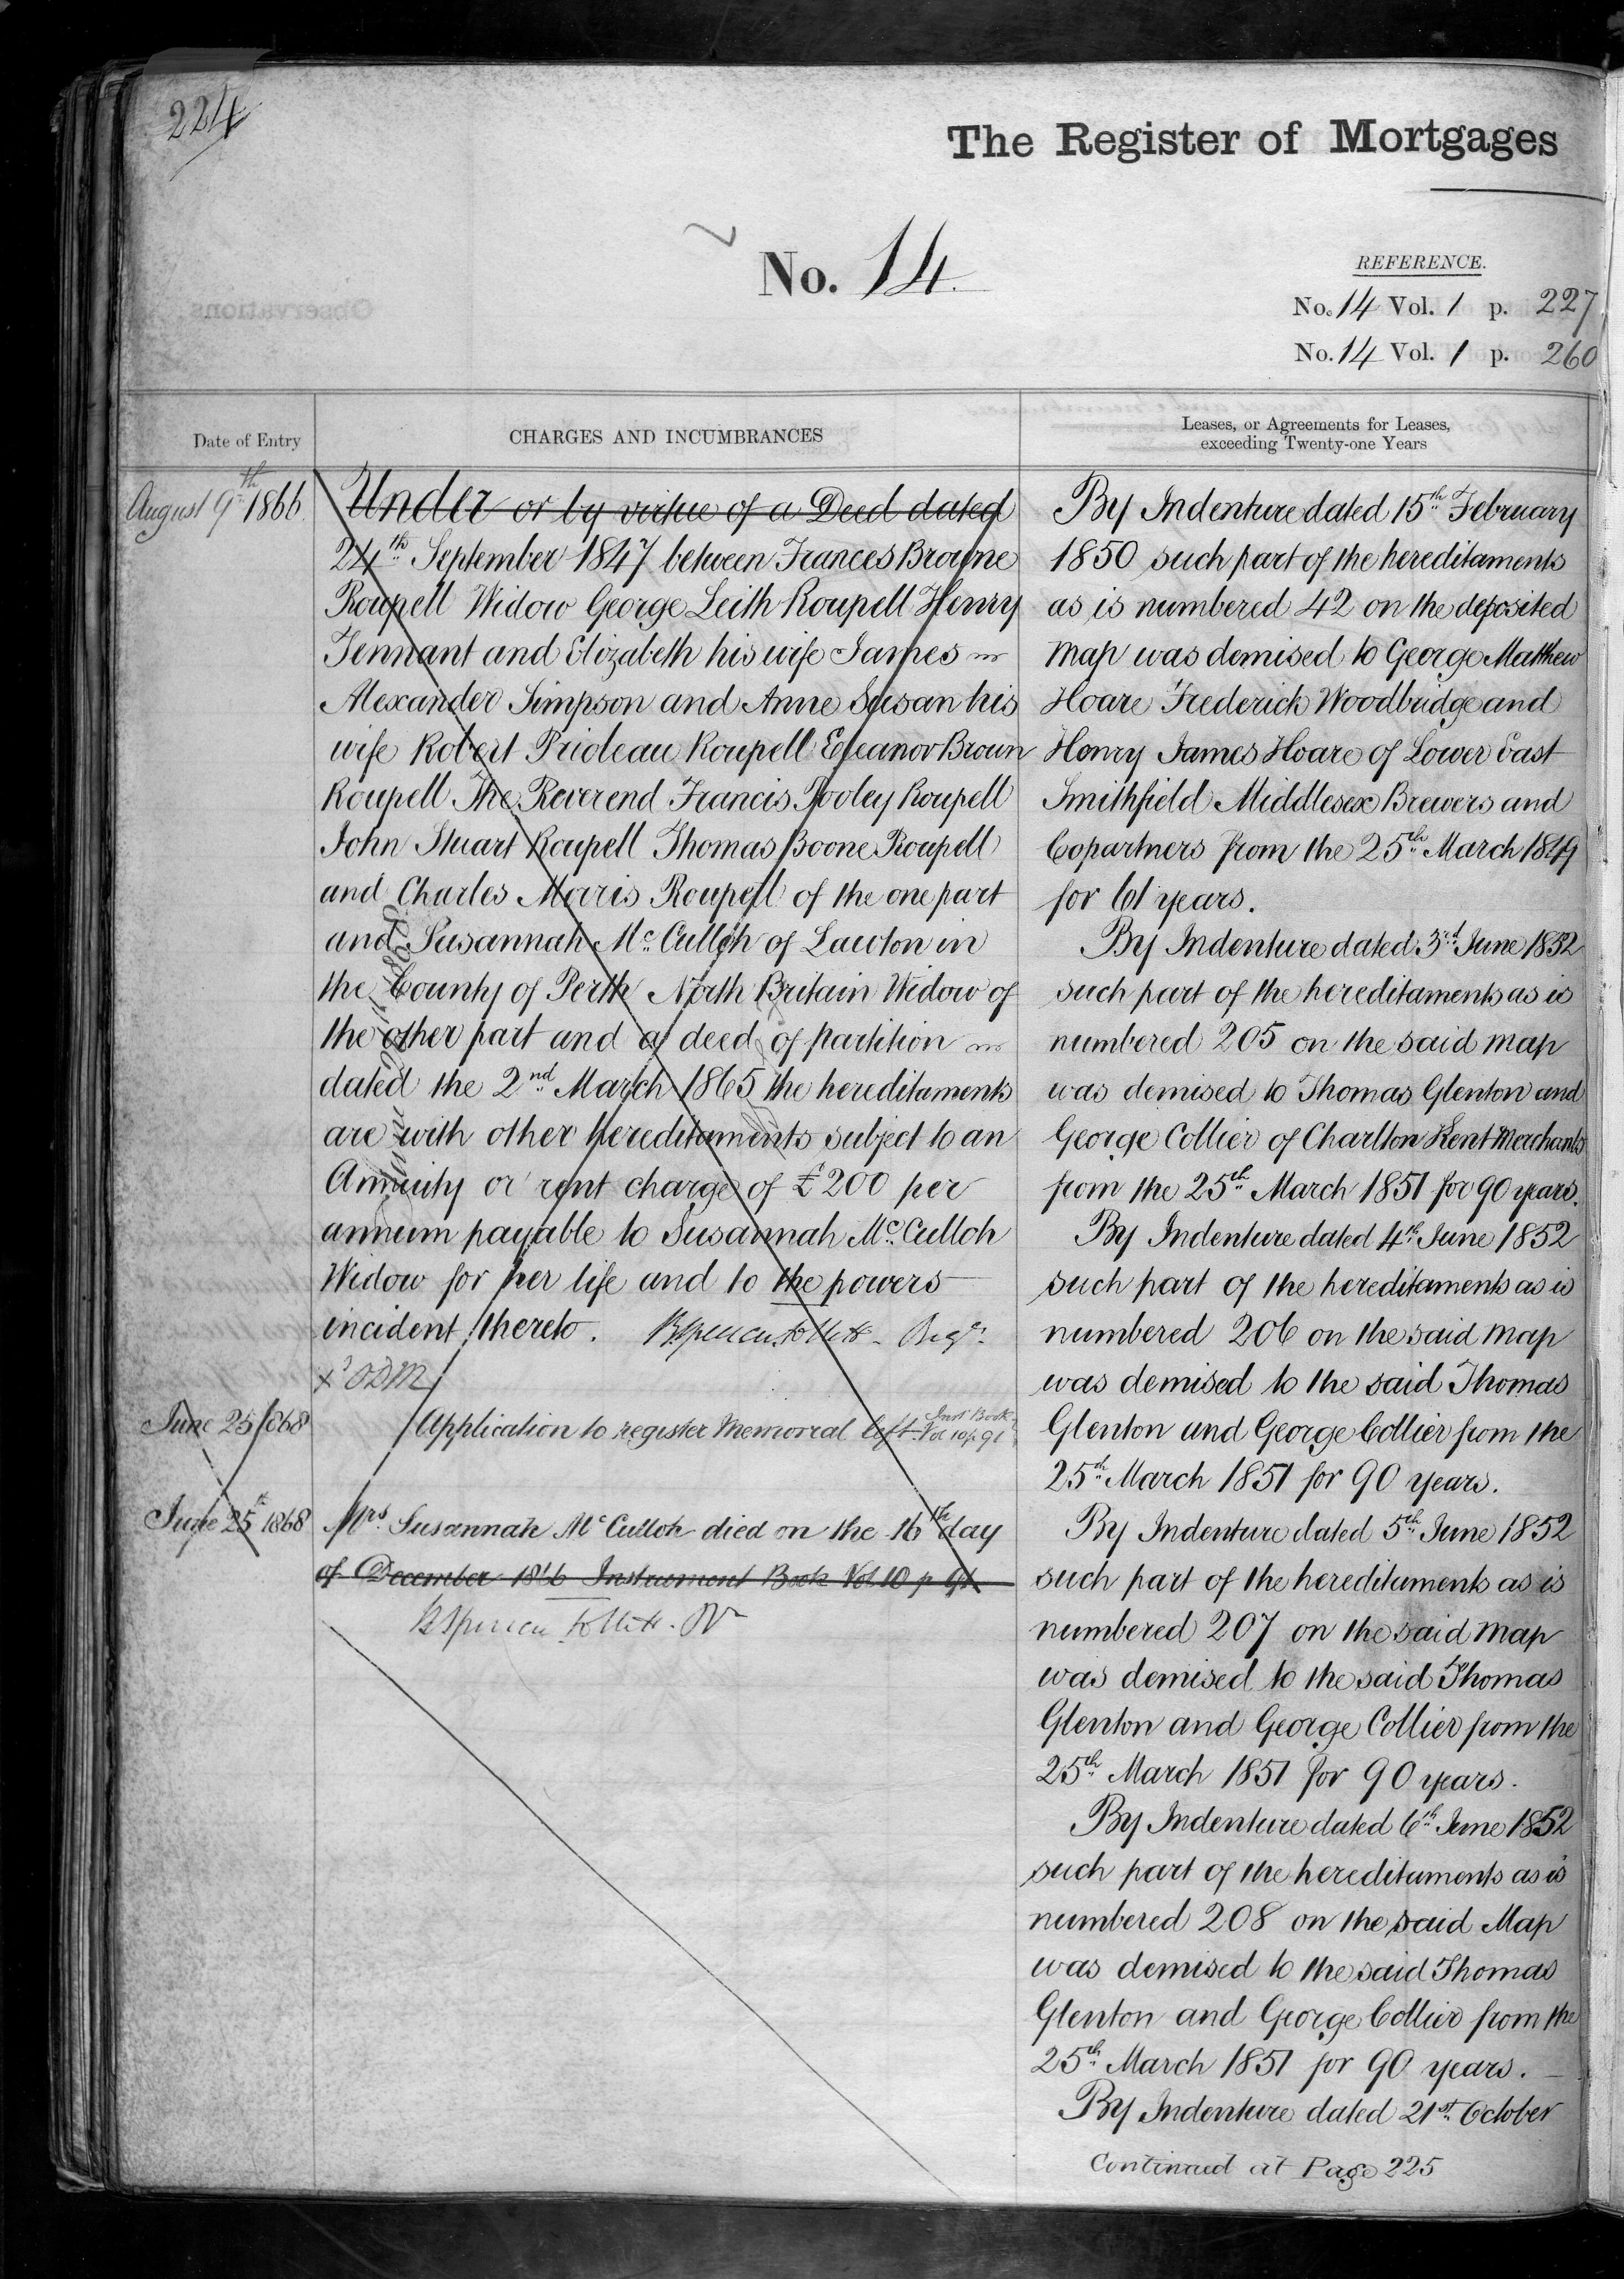 224
The Register of Mortgages
No. 14.
REFERENCE.
No. 14 Vol. 1 p. 227
No. 14 Vol. 1 p. 260
Date of Entry
CHARGES AND INCUMBRANCES
Leases, or Agreements for Leases,
exceeding Twenty-one Years
August 9th 1866.
Under or by virtue of a Deed dated
24th September 1847 between Frances Browne
Roupell Widow George Leith Roupell Henry
Tennant and Elizabeth his wife James
Alexander Simpson and Anne Susan his
wife Robert Prideau Roupell Eleanor Brown
Roupell The Reverend Francis Pooley Roupell
John Stuart Roupell Thomas Boone Roupell
and Charles Morris Roupell of the one part
and Susannah Mc. Culloh of Lawton in
the County of Perth North Britain Widow of
the other part and a deed of partition
dated the 2nd March 1865 the hereditaments
are with other hereditaments subject to an
Annuity or rent charge of £200 per
annum payable to Susannah Mc. Culloh
Widow for her life and to the powers
incident thereto.
June 25 1868
Application to register Memorial left Inst Book
Vol 10 p 91
June 25th 1868
Mrs. Susannah Mc Culloh died on the 16th day
of December 1866 Instrument Book Vol 10 p 91
By Indenture dated 15th February
1850 such part of the hereditaments
as is numbered 42 on the deposited
map was demised to George Matthew
Hoare Frederick Woodbridge and
Henry James Hoare of Lower East
Smithfield Middlesex Brewers and
Copartners from the 25th March 1849
for 61 years.
By Indenture dated 3rd June 1852
such part of the hereditaments as is
numbered 205 on the said map
was demised to Thomas Glenton and
George Collier of Charlton Kent Merchants
from the 25th March 1851 for 90 years.
By Indenture dated 4th June 1852
such part of the hereditaments as is
numbered 206 on the said map
was demised to the said Thomas
Glenton and George Collier from the
25th March 1851 for 90 years.
By Indenture dated 5th June 1852
such part of the hereditaments as is
numbered 207 on the said map
was demised to the said Thomas
Glenton and George Collier from the
25th March 1851 for 90 years.
By Indenture dated 6th June 1852
such part of the hereditaments as is
numbered 208 on the said Map
was demised to the said Thomas
Glenton and George Collier from the
25th March 1851 for 90 years.
By Indenture dated 21st October
Continued at Page 225